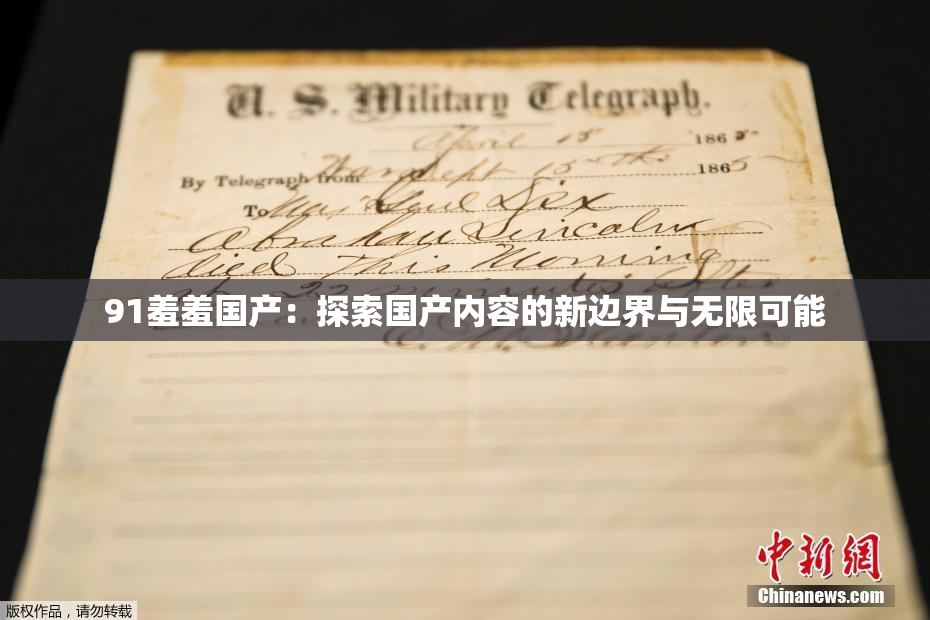 U. S. Military Telegraph.
April 15 1865.
By Telegraph from War Dept 15th 1865
To Maj Genl Dix
Abraham Lincoln
died This Morning
at 22 minutes after
91羞羞国产：探索国产内容的新边界与无限可能
E. M. Stanton
中新網
Chinanews.com
版权作品，请勿转载